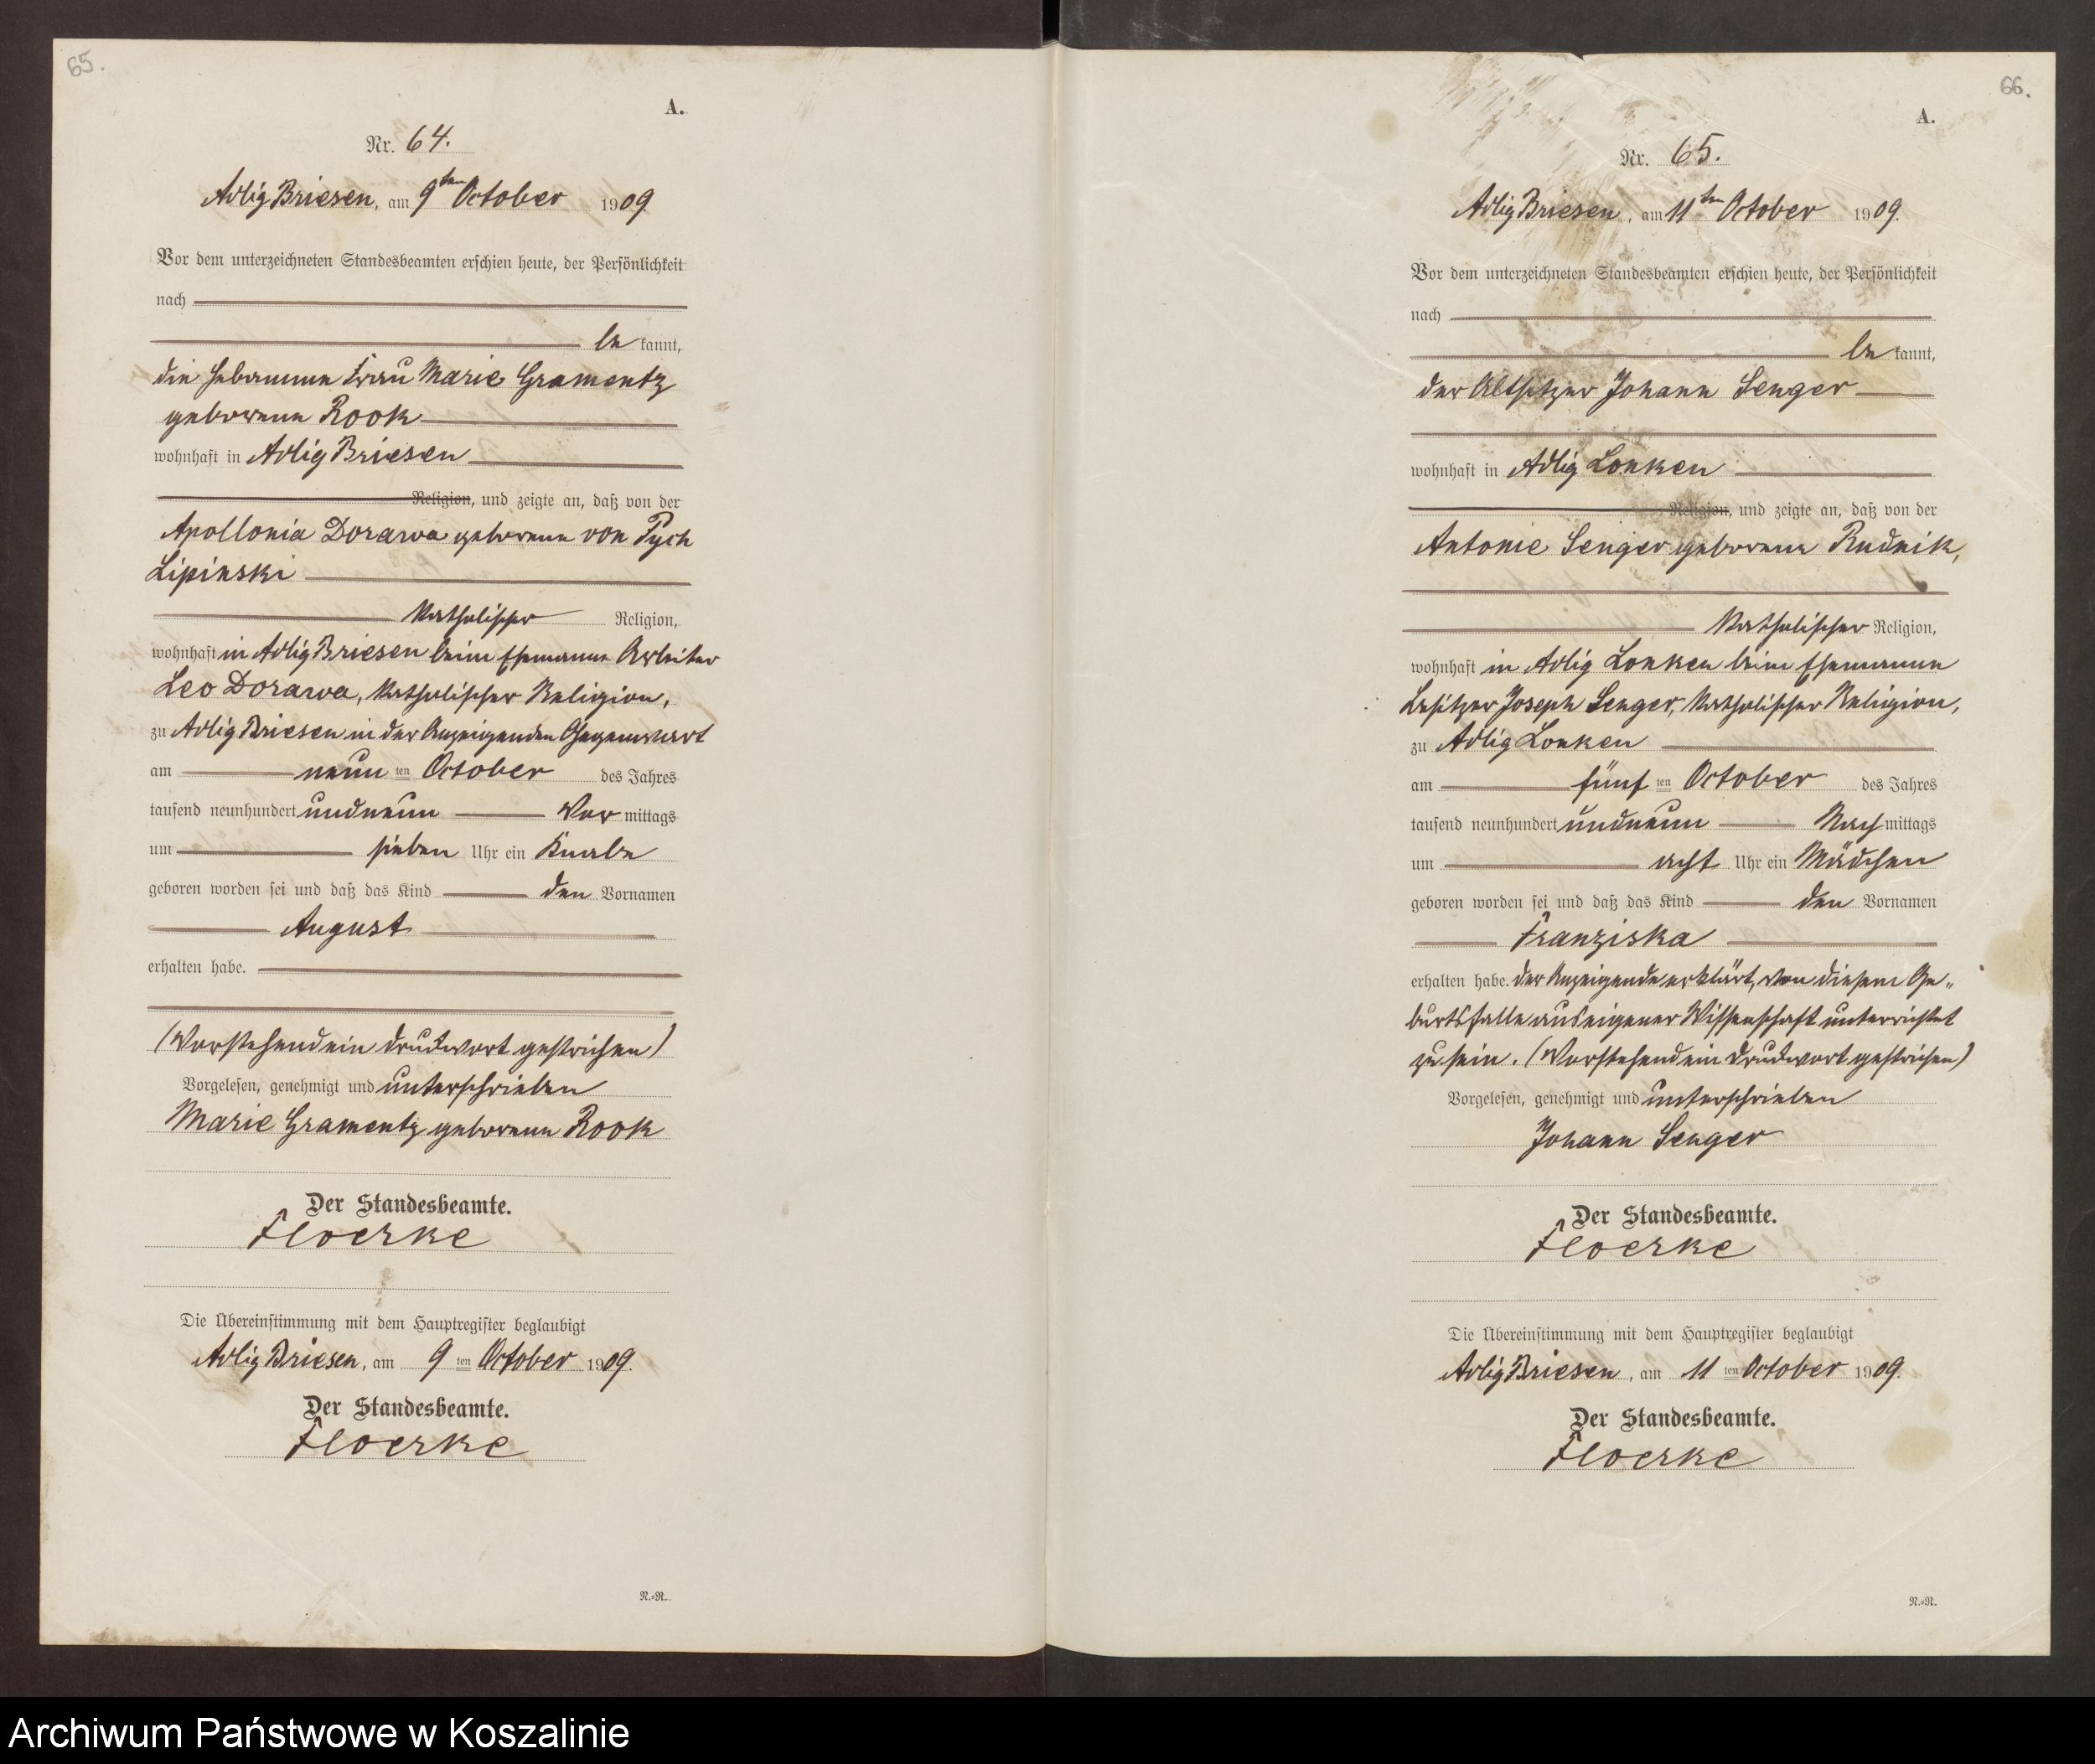 65.
A.
Nr. 64.
Adlig Briesen, am 9ten October 1909
Vor dem unterzeichneten Standesbeamten erschien heute, der Persönlichkeit
nach
be kannt,
die Hebamme Frau Marie Gramentz
geborene Rook
wohnhaft in Adlig Briesen
Religion, und zeigte an, daß von der
Apollonia Dorawa geborene von Pych
Lipinski
katholischer Religion,
wohnhaft in Adlig Briesen beim Ehemanne Arbeiter
Leo Dorawa, katholischer Religion,
zu Adlig Briesen in der Anzeigenden Gegenwart
am neun ten October des Jahres
tausend neunhundert und neun Vor mittags
um sieben Uhr ein Knabe
geboren worden sei und daß das Kind den Vornamen
August
erhalten habe.
(Vorstehend ein Druckwort gestrichen)
Vorgelesen, genehmigt und unterschrieben
Marie Gramentz geborene Rook
Der Standesbeamte.
Floerke
Die Übereinstimmung mit dem Hauptregister beglaubigt
Adlig Briesen, am 9 ten October 1909.
Der Standesbeamte.
Floerke
N.=R.
66.
A.
Nr. 65.
Adlig Briesen, am 11ten October 1909.
Vor dem unterzeichneten Standesbeamten erschien heute, der Persönlichkeit
nach
be kannt,
der Altsitzer Johann Senger
wohnhaft in Adlig Lonken
Religion, und zeigte an, daß von der
Antonie Senger geborene Rudnik,
katholischer Religion,
wohnhaft in Adlig Lonken beim Ehemanne
Besitzer Joseph Senger, katholischer Religion,
zu Adlig Lonken
am fünf ten October des Jahres
tausend neunhundert und neun Nach mittags
um acht Uhr ein Mädchen
geboren worden sei und daß das Kind den Vornamen
Franziska
erhalten habe. Der Anzeigende erklärt, von diesem Ge-
burtsfalle aus eigener Wissenschaft unterrichtet
zu sein. (Vorstehend ein Druckwort gestrichen)
Vorgelesen, genehmigt und unterschrieben
Johann Senger
Der Standesbeamte.
Floerke
Die Übereinstimmung mit dem Hauptregister beglaubigt
Adlig Briesen, am 11 ten October 1909.
Der Standesbeamte.
Floerke
N.=R.
Archiwum Państwowe w Koszalinie